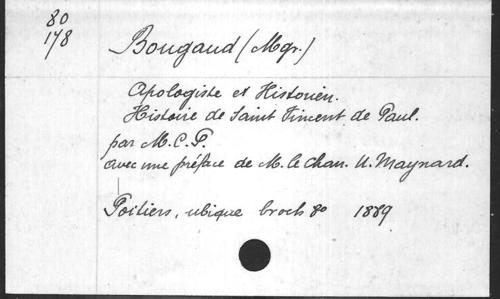 80
178
Bougaud (Mgr.)
Apologiste et Historien.
Histoire de Saint Vincent de Paul.
par M.C.P.
avec une préface de M. le Chan. U. Maynard.
Poitiers, ubique broch 8o 1889